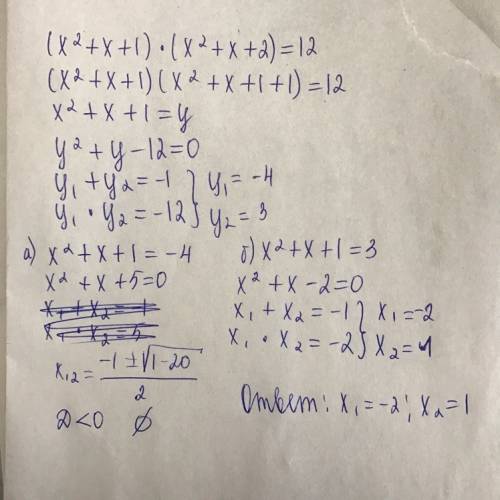 (x²+x+1)·(x²+x+2)=12
(x²+x+1)(x²+x+1+1)=12
x²+x+1=y
y²+y-12=0
y₁+y₂=-1 } y₁=-4
y₁·y₂=-12 } y₂=3
а) x²+x+1=-4
x²+x+5=0
x₁+x₂=-1
x₁·x₂=5
x₁₂=(-1±√(1-20))/2
D<0 ∅
б) x²+x+1=3
x²+x-2=0
x₁+x₂=-1 } x₁=-2
x₁·x₂=-2 } x₂=1
Ответ: x₁=-2; x₂=1